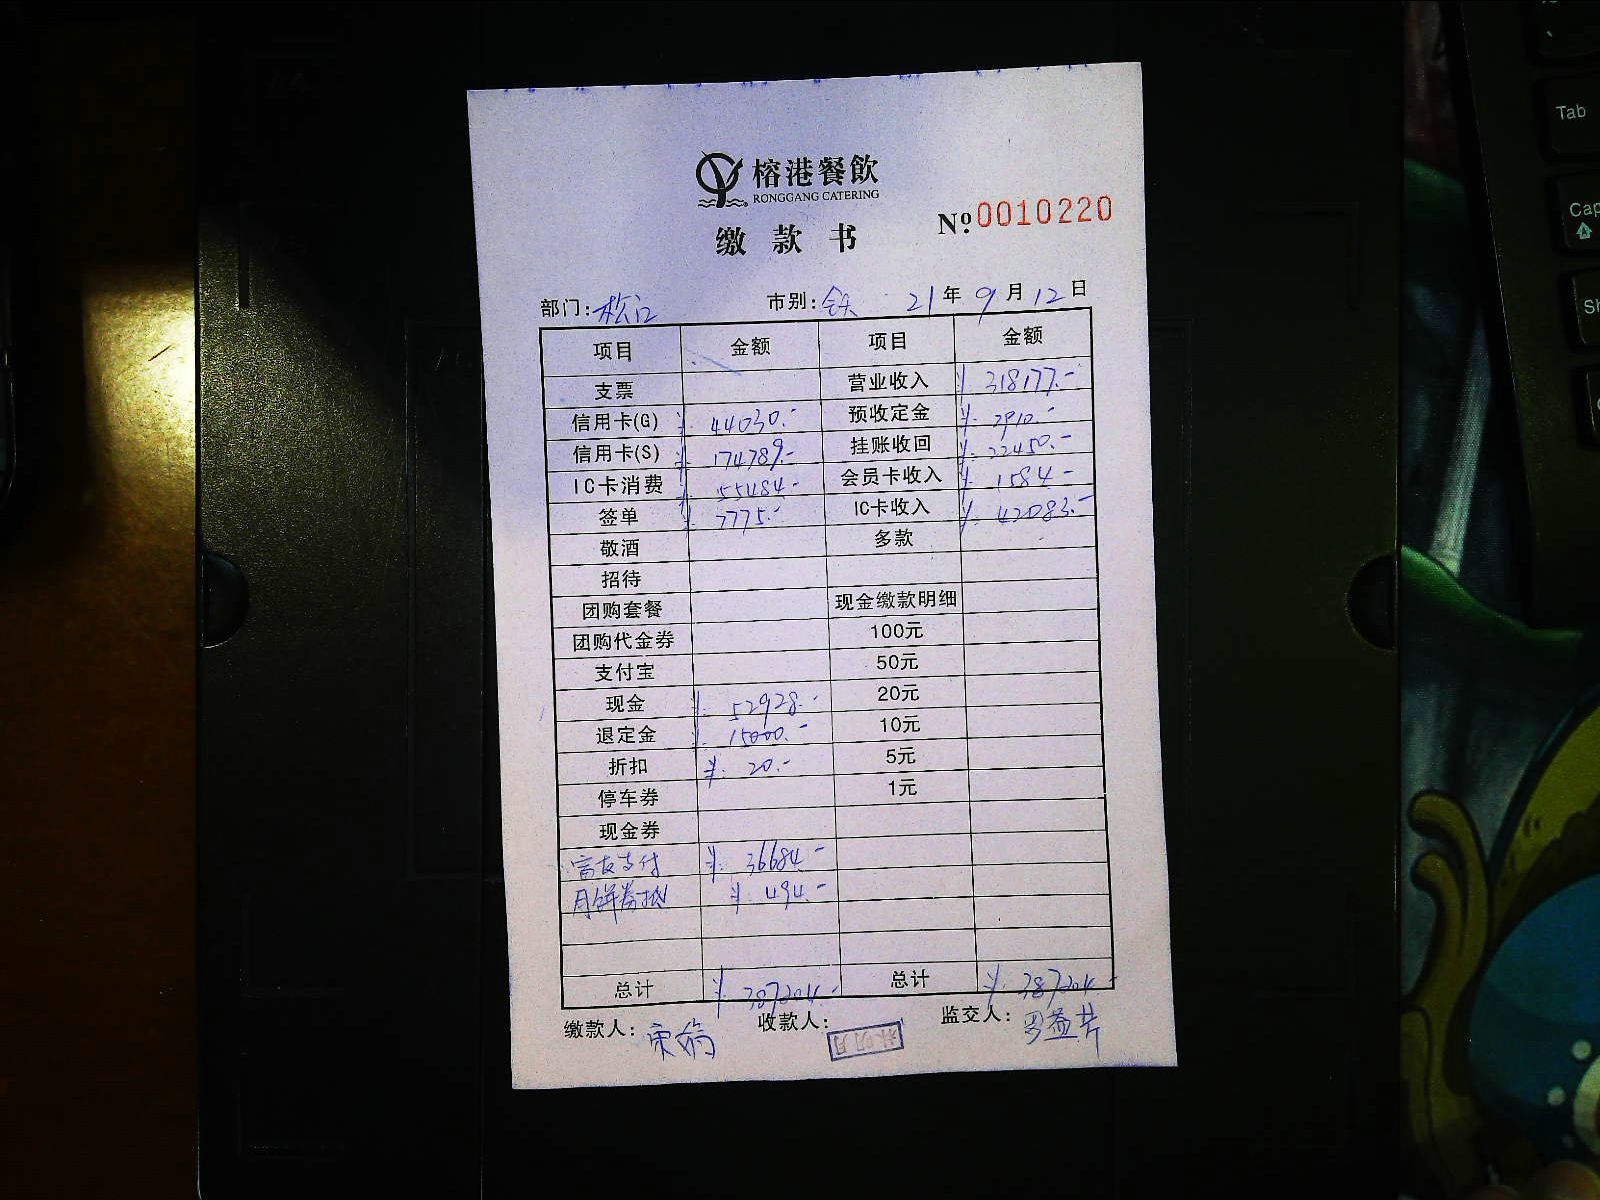 榕港餐飲
RONGGANG CATERING
缴款书 №0010220
部门:松江 市别:全天 21年9月12日
项目 金额 项目 金额
支票 营业收入 ¥318177.-
信用卡(G) ¥44030.- 预收定金 ¥2910.-
信用卡(S) ¥174789.- 挂账收回 ¥22450.-
IC卡消费 ¥55484- 会员卡收入 ¥1584-
签单 ¥7775.- IC卡收入 ¥42083.-
敬酒 多款
招待
团购套餐 现金缴款明细
团购代金券 100元
支付宝 50元
现金 ¥52928.- 20元
退定金 ¥15000.- 10元
折扣 ¥20.- 5元
停车券 1元
现金券
富友支付 ¥36684-
月饼券抵 ¥494.-
总计 ¥387204.- 总计 ¥387204.-
缴款人: 收款人: 监交人:
Tab
Cap
Sh